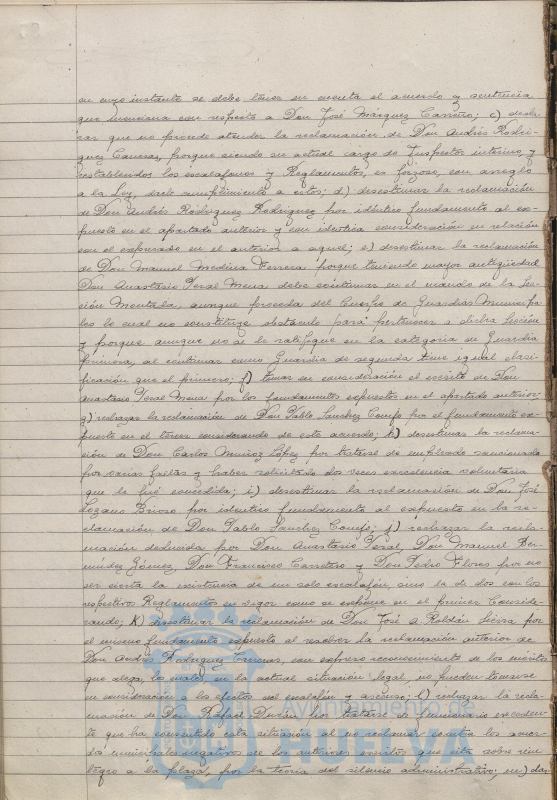 en cuyo instante se debe tener en cuenta el acuerdo y sentencia
que menciona con respecto a Don José Márquez Carrero; c) decla-
rar que no procede atender la reclamación de Don Andrés Rodrí-
guez Canevas, porque siendo su actual cargo de Inspector interino, y
establecidos los escalafones y Reglamentos, es forzoso, con arreglo
a la Ley, darle cumplimiento a estos; d) desestimar la reclamación
de Don Andrés Rodriguez Rodriguez por idéntico fundamento al ex-
puesto en el apartado anterior y con identica consideración en relación
con el expresado en el anterior a aquel; e) desestimar la reclamación
de Don Manuel Medina Ferrera porque teniendo mayor antigüedad
Don Anastasio Yeral Mena debe continuar en el mando de la Sec-
ción Montada, aunque proceda del Cuerpo de Guardias Municipa-
les lo cual no constituye obstáculo para pertenecer a dicha Sección
y porque aunque no se le ratifique en la categoria de Guardia
primera, al continuar como Guardia de segunda tiene igual clasi-
ficación que el primero; f) tomar en consideración el escrito de Don
Anastasio Yeral Mena por los fundamentos expuestos en el apartado anterior;
g) rechazar la reclamación de Don Pablo Sanchez Conejo por el fundamento ex-
puesto en el tercer considerando de este acuerdo; h) desestimar la reclama-
ción de Don Carlos Muñoz López por tratarse de empleado sancionado
por varias faltas y haber solicitado dos veces excedencia voluntaria
que le fué concedida; i) desestimar la reclamación de Don José
Lozano Brioso por identico fundamento al expuesto en la re-
clamación de Don Pablo Sanchez Conejo; j) rechazar la recla-
mación deducida por Don Anastasio Yeral, Don Manuel Ber-
múdez Gómez, Don Francisco Carretero y Don Pedro Flores por no
ser cierta la existencia de un solo escalafón, sino la de dos con los
respectivos Reglamentos en vigor como se expone en el primer Conside-
rando; k) desestimar la reclamación de Don José A. Roldán Sierra por
el mismo fundamento expuesto al resolver la reclamación anterior de
Don Andrés Rodriguez Canevas, con expreso reconocimiento de los méritos
que alega, los cuales, en la actual situación legal, no pueden tomarse
en consideración a los efectos del escalafón y ascenso; l) rechazar la recla-
mación de Don Rafael Durán por tratarse de funcionario exceden-
te que ha consentido esta situación al no reclamar contra los acuer-
dos municipales negativos de los anteriores escritos que cita sobre rein-
tegro a la plaza, por la teoria del silencio administrativo; m) dar
Ayuntamiento de
HUELVA